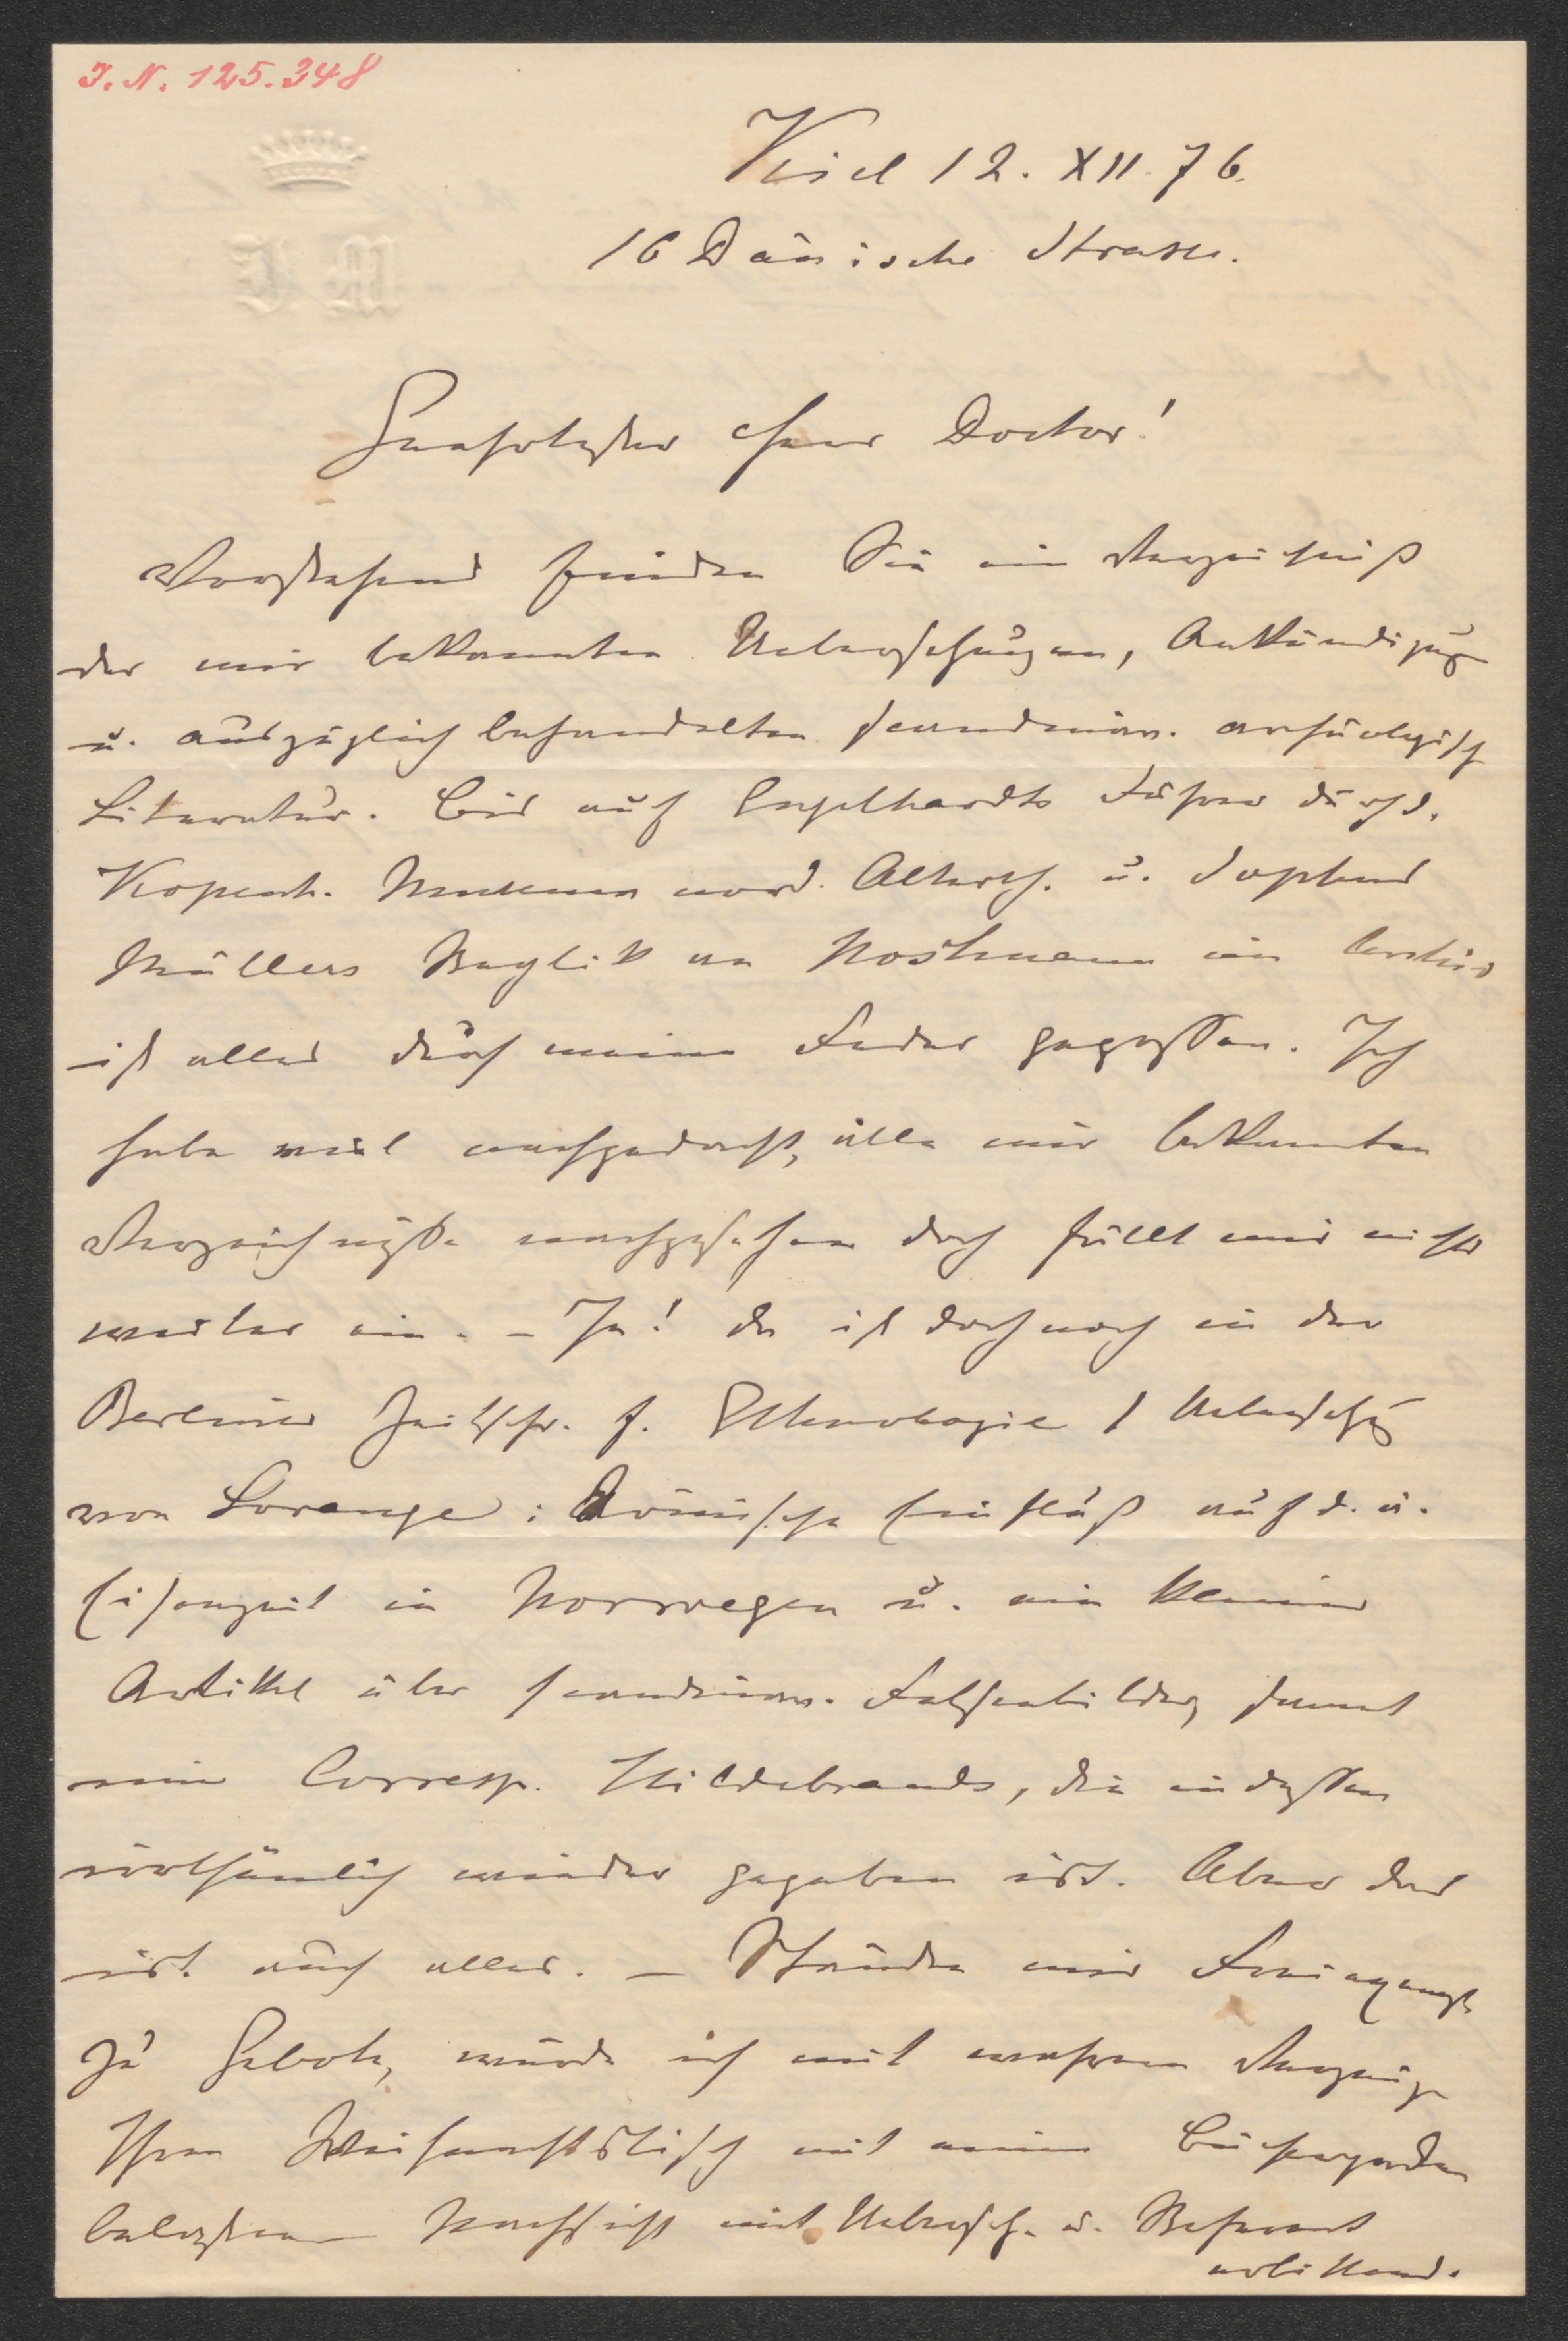 I. N. 125.348
J M
Kiel 12. XII. 76.
16 Dänische Strasse.
Geehrtester Herr Doctor!
Vorstehend finden Sie ein Verzeichniß
der mir bekannten Uebersetzungen, Ankündigung
u. auszüglich behandelten scandinav. archäologisch
Literatur. Bis auf Engelhardts Führer durch d.
Kopenh. Museum nord. Alterth. u. Sophus
Müllers Replik an Hostmann im Archiv
ist alles durch meine Feder geflossen. Ich
habe viel nachgedacht, alle mir bekannten
Verzeichnisse nachgesehen doch fällt mir nichts
weiter ein. – Ja! da ist doch noch in der
Berliner Zeitschr. f. Ethnologie 1 Uebersetzg
von Lorange: Römische Einfluß auf d. ä.
Eisenzeit in Norwegen u. ein kleiner
Artikel über scandinav. Felsenbilder, sammt
eine Corresp. Hildebrands, die indessen
irrthümlich wieder gegeben ist. Aber das
ist auch alles. – Ständen mir
zu Gebote, würde ich mit wahrem Vergnüge
Ihren Weihnachtstisch mit einem
Nachsicht mit Uebersch. u.